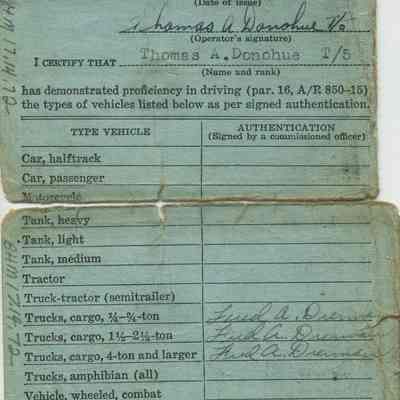 (Date of issue)
Thomas A Donohue T/5
(Operator's signature)
I CERTIFY THAT Thomas A. Donohue T/5
(Name and rank)
has demonstrated proficiency in driving (par. 16, A/R 850-15)
the types of vehicles listed below as per signed authentication.
TYPE VEHICLE AUTHENTICATION
(Signed by a commissioned officer)
Car, halftrack
Car, passenger
Motorcycle
Tank, heavy
Tank, light
Tank, medium
Tractor
Truck-tractor (semitrailer)
Trucks, cargo, ¼-¾-ton Fred A.
Trucks, cargo, 1½-2½-ton Fred A.
Trucks, cargo, 4-ton and larger Fred A.
Trucks, amphibian (all)
Vehicle, wheeled, combat